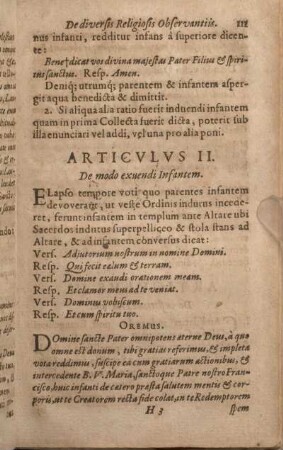 De diversis Religiosis Observantiis. 111
nus infanti, redditur infans à superiore dicen-
te:
Benedicat vos divina majestas Pater Filius & spiri-
tus sanctus. Resp. Amen.
Demùm utrumq; parentem & infantem asper-
git aqua benedicta & dimittit.
2. Si aliqua alia ratio fuerit induendi infantem
quam in prima Collecta fuerit dicta, poterit sub
illa enunciari vel addi, vel una pro alia poni.
ARTICVLVS II.
De modo exuendi Infantem.
ELapso tempore voti quo parentes infantem
devoverant, ut veste Ordinis indutus ince-
deret, ferunt infantem in templum ante Altare ubi
Sacerdos indutus superpelliceo & stola stans ad
Altare, & ad infantem conversus dicat:
Vers. Adjutorium nostrum in nomine Domini.
Resp. Qui fecit cælum & terram.
Vers. Domine exaudi orationem meam.
Resp. Et clamor meus ad te veniat.
Vers. Dominus vobiscum.
Resp. Et cum spiritu tuo.
OREMUS.
DOmine sancte Pater omnipotens æterne Deus, à quo
omne est donum, tibi gratias referimus, & impleta
vota reddimus, suscipe ea cum gratiarum actionibus, &
intercedente B. V. Maria, sanctoque Patre nostro Fran-
cisco, huic infanti de cætero præsta salutem mentis & cor-
poris, at te Creatorem recta fide colat, in te Redemptorem
H 3 spem